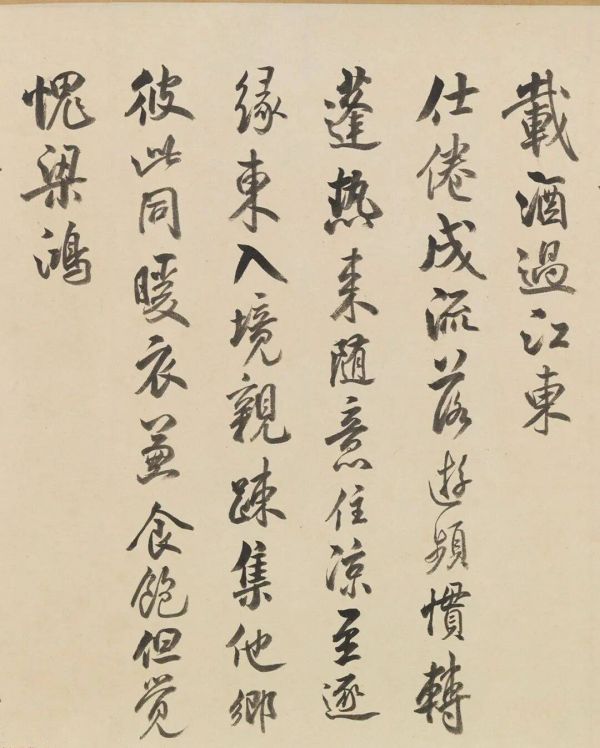 載酒過江東
仕倦成流落遊頻慣轉
蓬熱来随意住涼至逐
緣東入境親踈集他鄉
彼此同暖衣兼食飽但覚
愧梁鴻